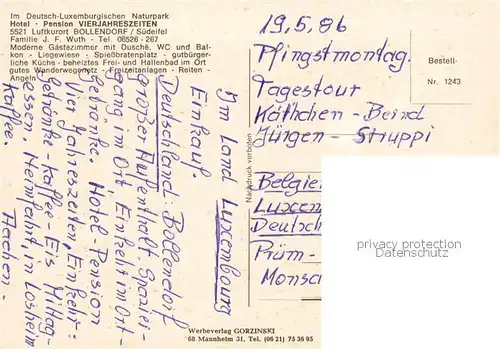 Im Deutsch-Luxemburgischen Naturpark
Hotel - Pension VIERJAHRESZEITEN
5521 Luftkurort BOLLENDORF / Südeifel
Familie J. F. Wuth - Tel. 06526 - 267
Moderne Gästezimmer mit Dusche, WC und Bal-
kon - Liegewiese - Spießbratenplatz - gutbürger-
liche Küche - beheiztes Frei- und Hallenbad im Ort
gutes Wanderwegenetz - Freizeitanlagen - Reiten -
Angeln
19.5.86
Pfingstmontag.
Tagestour
Käthchen - Bernd
Jürgen - Struppi
Belgie
Luxem
Deutsch
Prüm -
Monsch
Bestell-
Nr. 1243
Nachdruck verboten
Im Land Luxembourg
Einkauf.
Deutschland: Bollendorf
großer Aufenthalt. Spazier-
gang im Ort Einkehr im Ort -
Getränke. Hotel-Pension
Vier Jahreszeiten, Einkehr:
Getränke-Kaffee-Eis Mittag-
essen, Heimfahrt, in Losheim
Kaffee.
privacy protection
for Ansichtskarten-Lexikon
Werbeverlag GORZINSKI
68 Mannheim 31, Tel. (06 21) 75 36 95